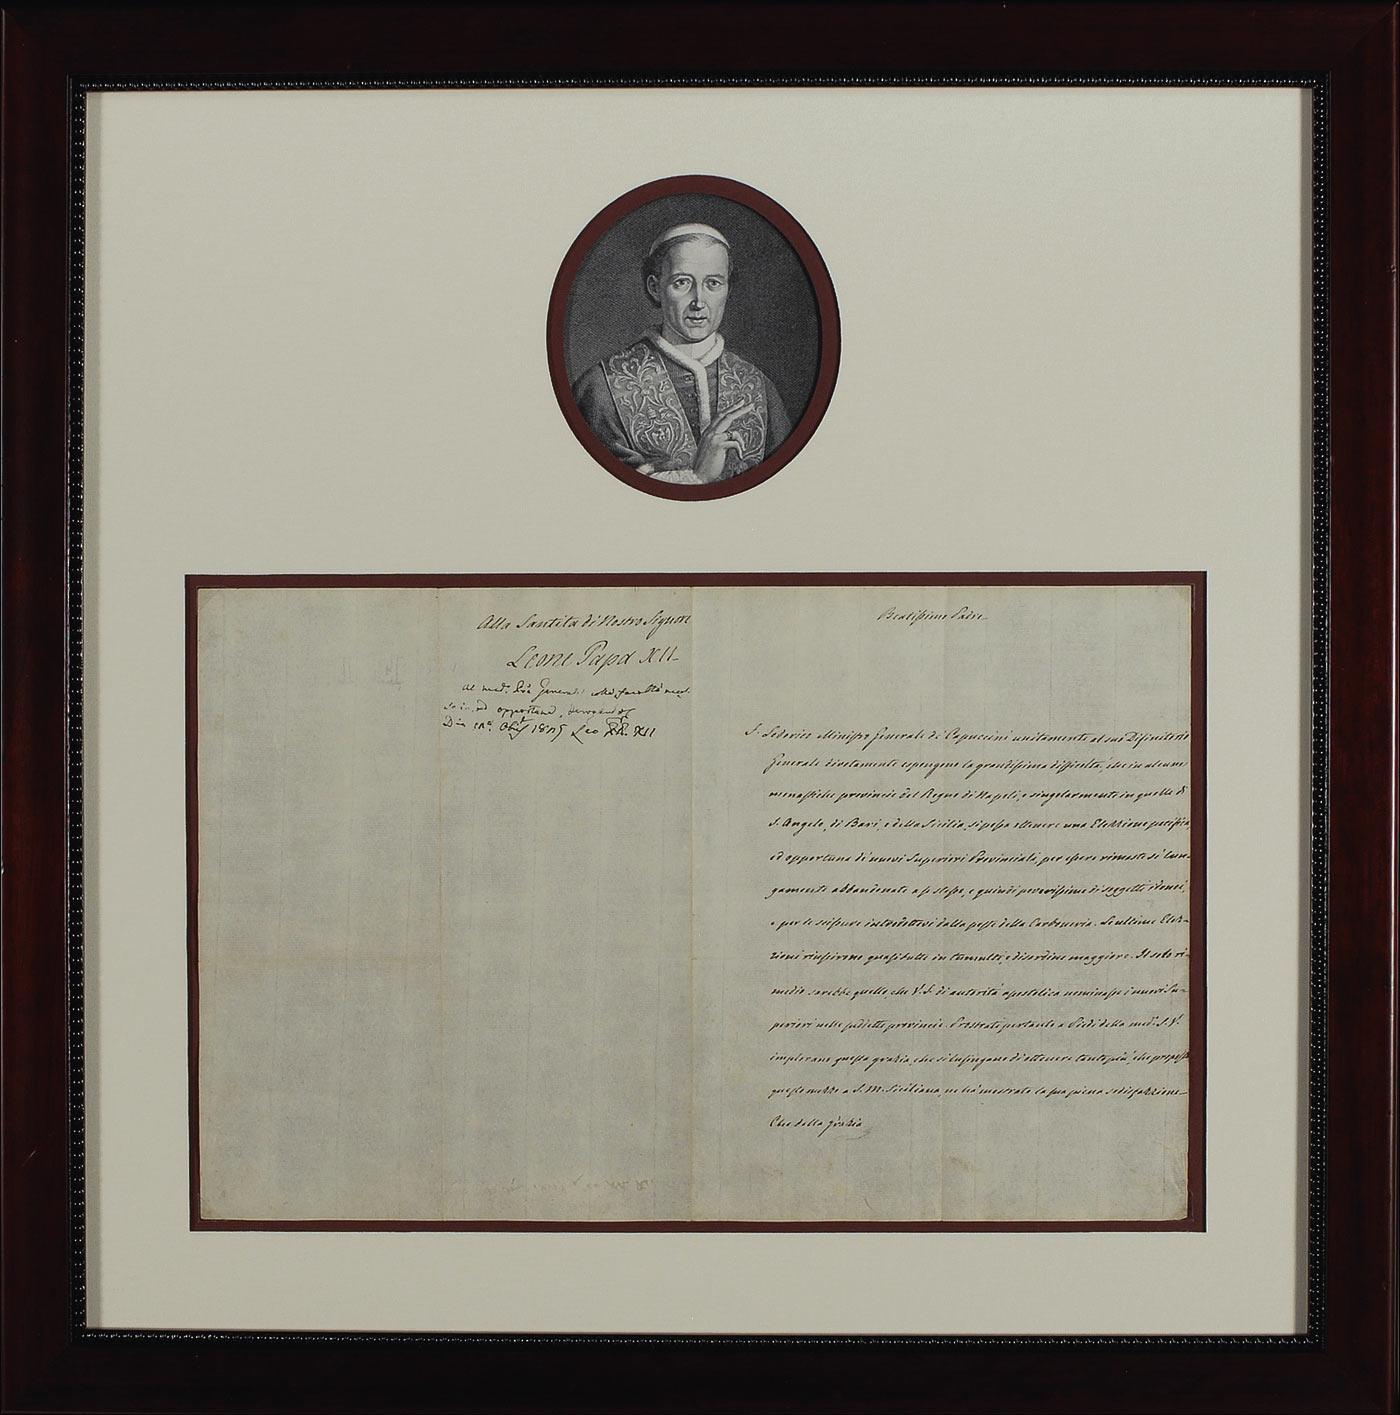 Alla Santità di Nostro Signore
Leone Papa XII
Al med. Generale facoltà
opportuna,
Die 1825 Leo PP. XII
Beatissimo Padre
Ministro Generale di Capuccini unitamente al suo Difinitorio
Generale divotamente espongono la grandissima difficoltà, che in alcune
monastiche provincie del Regno di Napoli, e singolarmente in quelle di
S. Angelo, di Bari, e della Sicilia, si possa ottenere una Elezzione pacifica,
ed opportuna di nuovi Superiori Provinciali, per essere rimaste sì lun=
gamente abbandonate a se stesse, e quindi poverissime di soggetti idonei,
e per le scissure introdottevi dalla peste della Carboneria. Le ultime Elez=
zioni riuscirono quasi tutte in tumulti, e disordine maggiore. Il solo ri=
medio sarebbe quello, che V. S. di autorità apostolica nominasse i nuovi Su=
periori nelle suddette provincie. Prostrati pertanto a Piedi della med. S. V.
implorano questa grazia, che si lusingano di ottenere tanto più, che proposto
questo mezzo a S. M. Siciliana, ne ha mostrato la sua piena sodisfazzione
Che della grazia